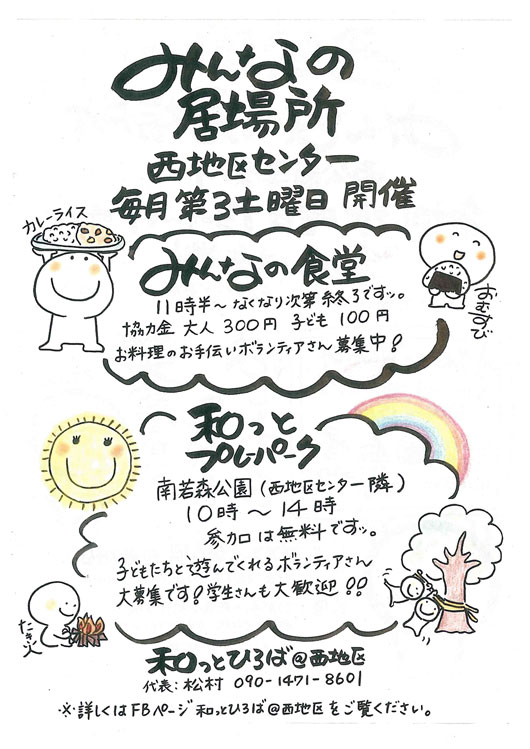 みんなの
居場所
西地区センター
毎月第3土曜日 開催
カレーライス
みんなの食堂
11時半〜なくなり次第終了ですッ。
協力金 大人 300円 子ども 100円
お料理のお手伝いボランティアさん募集中!
おむすび
和っと
プレーパーク
南若森公園(西地区センター隣)
10時〜14時
参加は無料ですッ。
子どもたちと遊んでくれるボランティアさん
大募集です!学生さんも大歓迎!!
たき火
和っとひろば@西地区
代表:松村 090-1471-8601
※詳しくはFBページ和っとひろば@西地区をご覧ください。